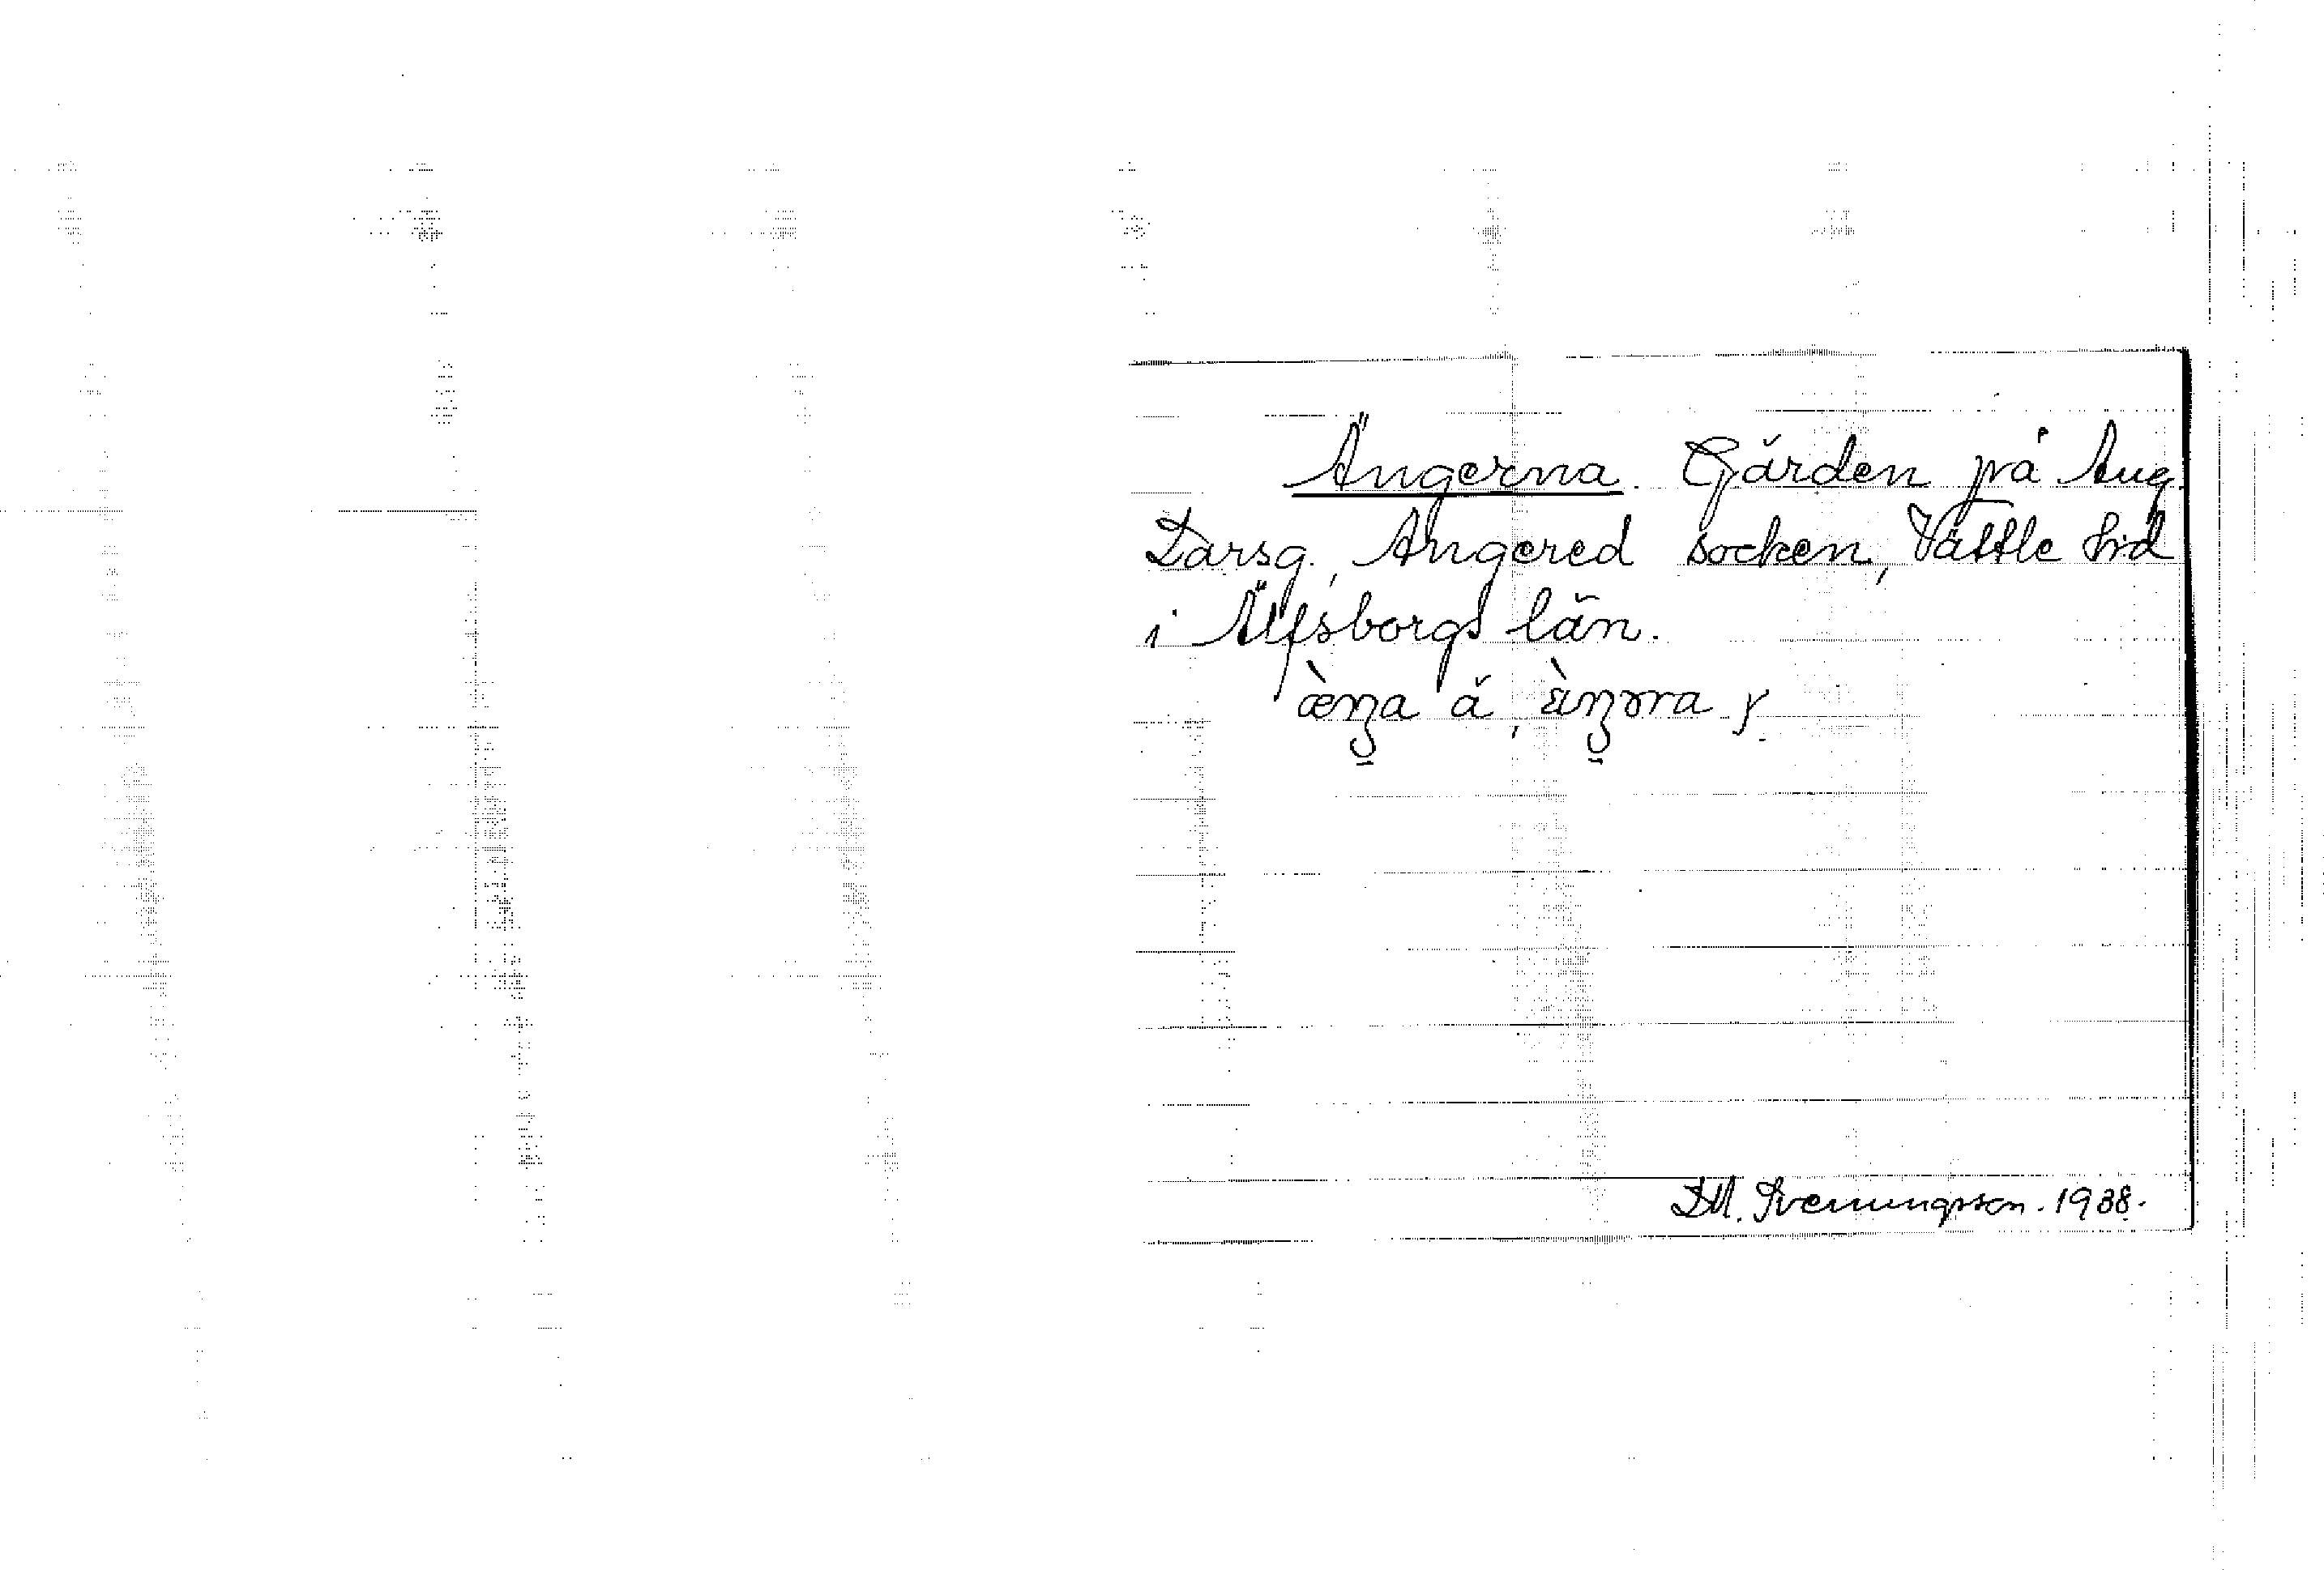 Ängerna. Gärden på Aug.
Darsg., Angered socken, Vättle hd
i Älfsborgs län.
æ̀ŋa ä, æ̀ŋərna y
D.M. Svenungsson. 1938.